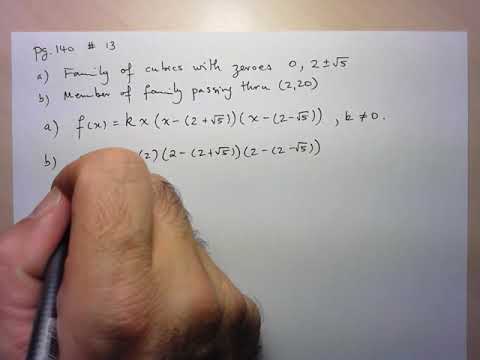 pg. 140 # 13
a) Family of cubics with zeroes 0, 2 ± √5
b) Member of family passing thru (2,20)
a) f(x) = k x (x - (2 + √5)) (x - (2 - √5)) , k ≠ 0.
b) (2) (2 - (2 + √5)) (2 - (2 - √5))